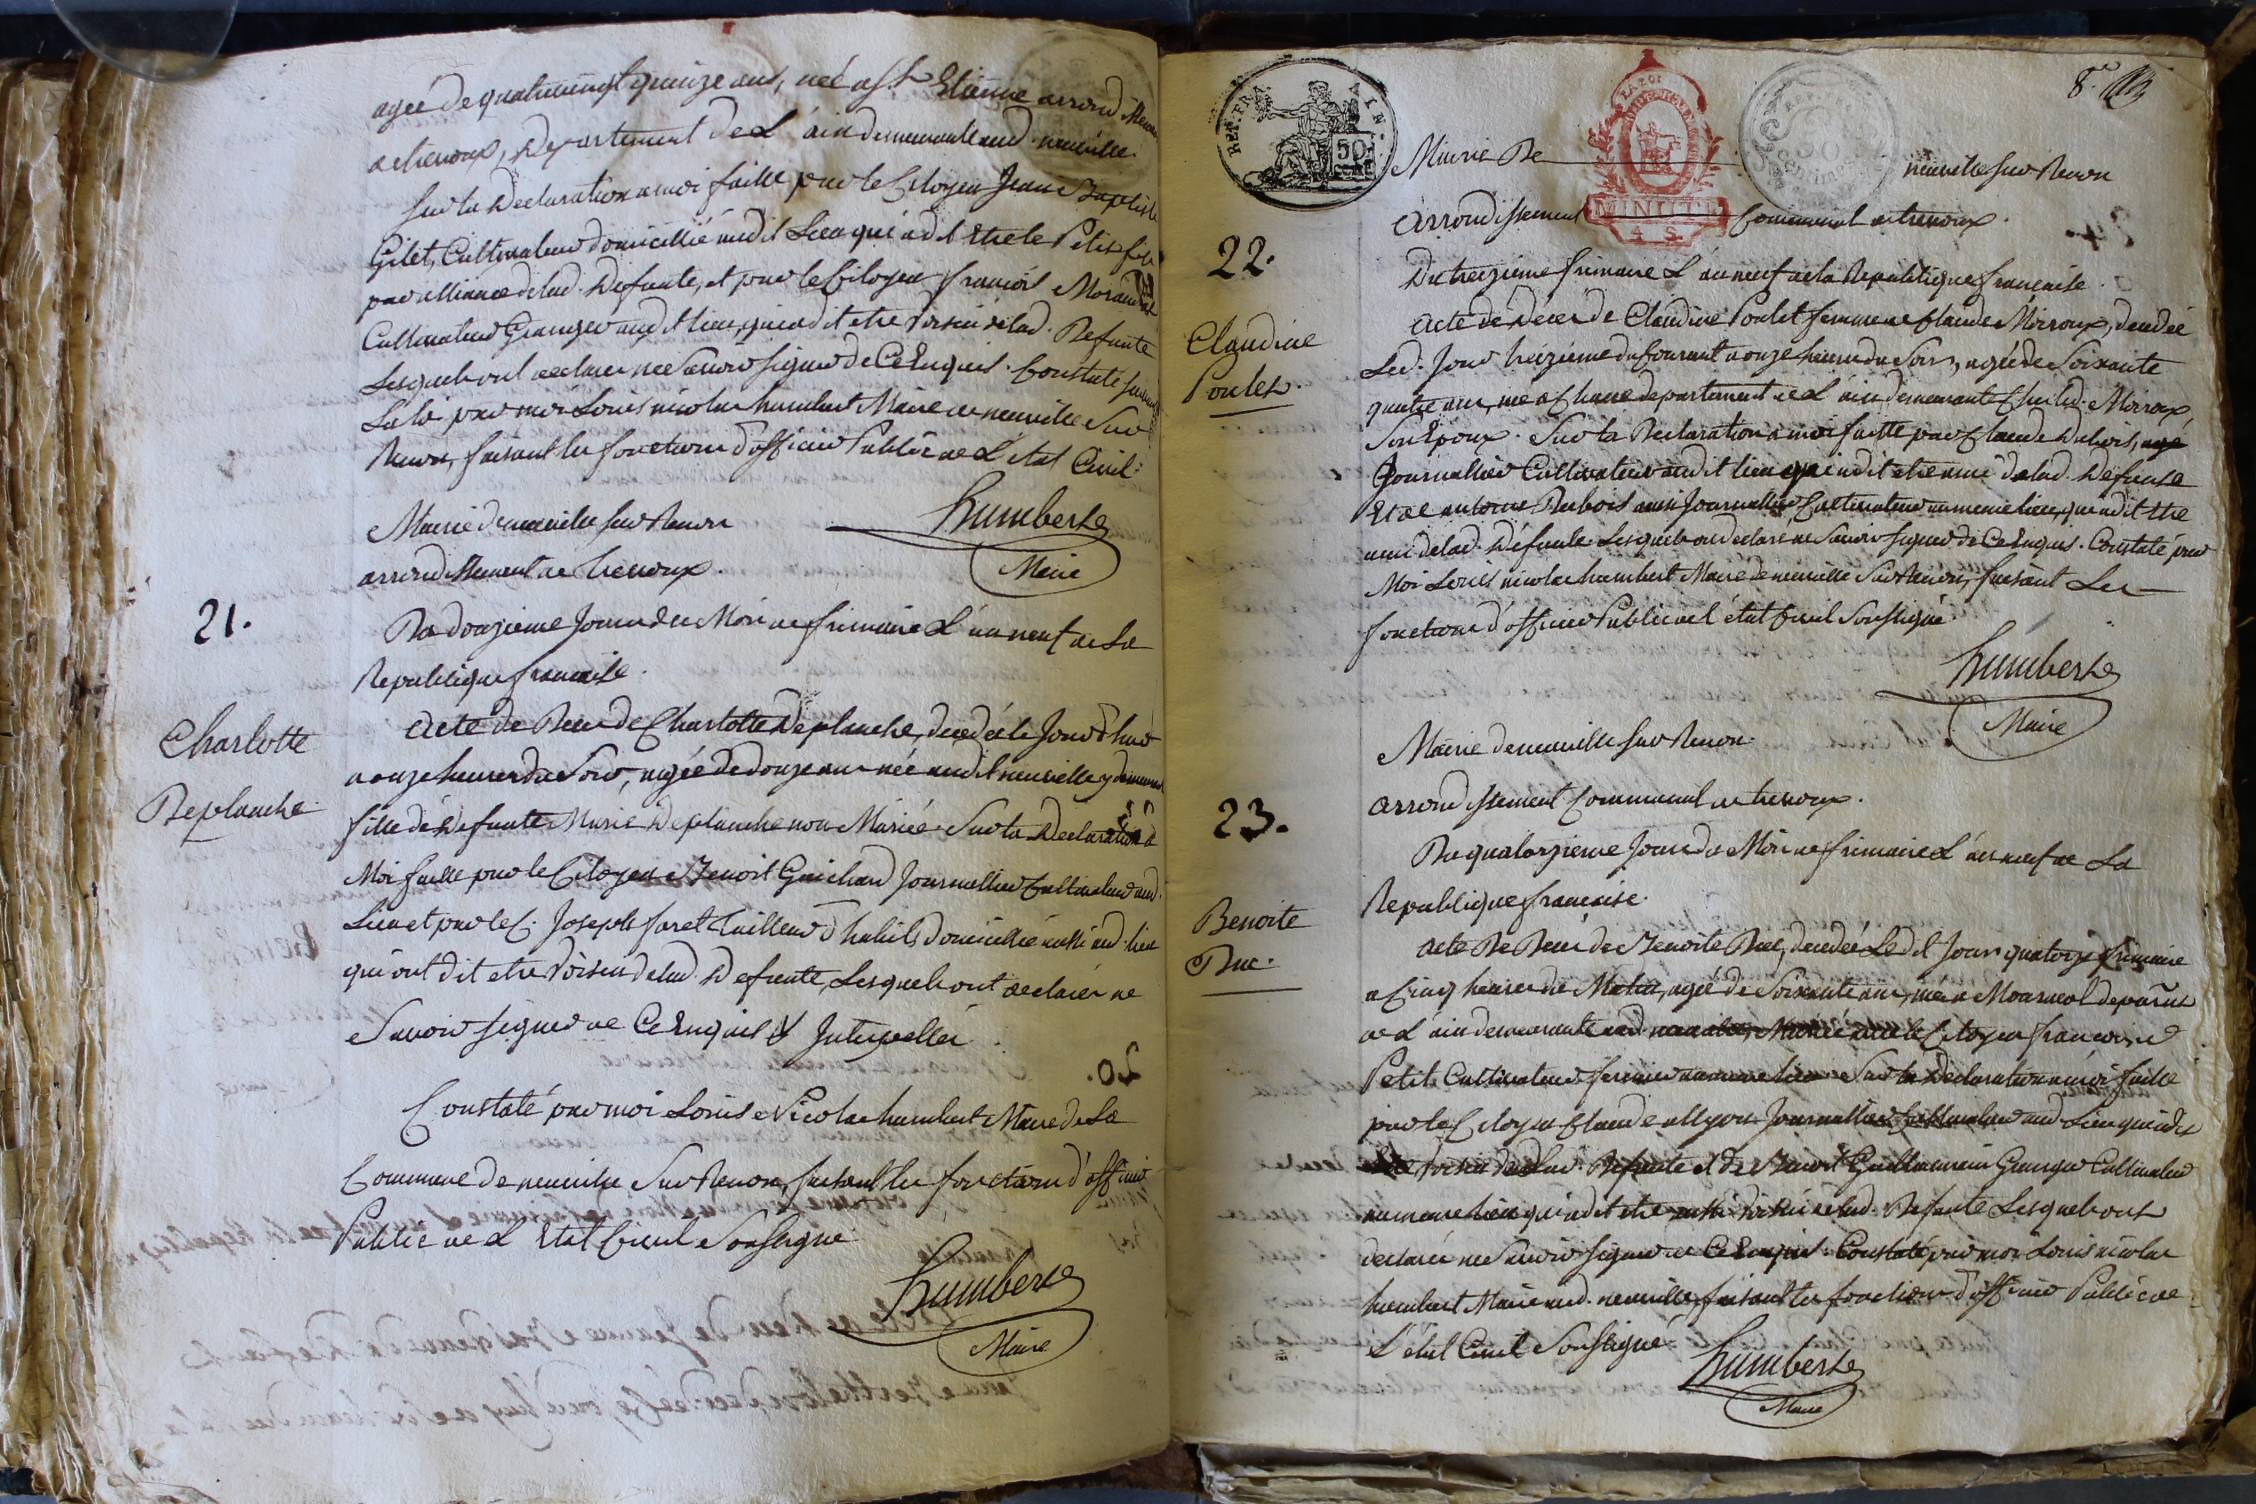 agée de quatrevingt quinze ans, née a St Etienne arrond
de trevoux, Departement de L'ain demeurante aud. neuville
Sur la Declaration a moi faitte par le Citoyen Jean Baptiste
Gilet, Cultivateur domicillié audit Lieu qui a dit Etre le Petit fils
par alliance de lad. Defunte, et par le Citoyen francois
Cultivateur Granger audit lieu, qui a dit etre voisin de lad. Defunte
Lesquels ont declarer ne Savoir signer de Ce Enquis. Constaté suivant
La loi par moi Louis nicolas humbert Maire de neuville Sur
Renon, faisant les fonctions d'officier Public de L'etat Civil.
humbert
Maire
Mairie de neuville sur Renon
arrondissement de trevoux.
21.
Du douzieme Jour du Mois de frimaire L'an neuf de La
Republique francaise.
Charlotte
Deplanche
acte de Deces de Charlotte Deplanche, decedée le Jour d'hui
a onze heures du Soir, agée de douze ans née audit neuville y
fille de defunte Marie Deplanche non Mariée. Sur la Declaration a
Moi faitte par le Citoyen Benoit Guichard Journallier Cultivateur aud.
Lieu et par le C. Joseph faret Tailleur d'habits domicillié aussi aud. lieu
qui ont dit etre voisin de lad. Defunte, Lesquels ont declarér ne
Savoir signer de Ce Enquis et Interpellér
Constaté par moi Louis Nicolas humbert Maire de La
Commune de neuville Sur Renon, faisant les fonctions d'officier
Public de L'Etat Civil Soussigné
humbert
Maire
8.e
REP. FRA.
AIN.
50
CENT
MINUTE
4 S.
Mairie De neuville sur Renon
arrondissement Communal de trevoux.
22.
Du treizieme frimaire L'an neuf de la Republique francaise.
Claudine
Poulet.
acte de Décés de Claudine Poulet femme de Claude Moiroux, decedée
Led. Jour treizieme du Courant a onze heures du Soir, agée de Soixante
quatre ans, née a departement de L'ain demeurante Chez led. Moiroux
Son Epoux. Sur la Declaration a moi faitte par Claude Dubois,
Journallier Cultivateur audit lieu qui a dit etre ami de lad. Defunte
Et de antoine Dubois aussi Journallier Cultivateur au meme lieu, qui a dit etre
ami de lad. Défunte. Lesquels ont declaré ne Savoir signer de Ce Enquis. Constaté par
Moi Louis nicolas humbert Maire de neuville Sur Renon, faisant Les
fonctions d'officier Public de l'état Civil Soussigné
humbert
Maire
Mairie de neuville sur Renon.
arrondissement Communal de trevoux.
23.
Du quatorzieme Jour du Mois de frimaire L'an neuf de La
Republique francaise.
Benoite
Duc.
acte De Decés de Benoite Duc, decedée Le dit Jour quatorze frimaire
a Cinq heures du Matin, agée de Soixante ans, née a departement
de L'ain demeurante aud. neuville, Mariée avec le Citoyen francois
Petit Cultivateur fermier au meme lieu Sur la Declaration a moi faitte
par le Citoyen Claude Journallier Cultivateur aud. Lieu qui a dit
etre voisin de lad. Defunte et de Benoit Guillaumin Granger Cultivateur
au meme lieu qui a dit etre aussi voisin de lad. Defunte Lesquels ont
declarér ne Savoir signer de Ce Enquis. Constaté par moi Louis nicolas
humbert Maire aud. neuville faisant les fonctions d'officier Public de
L'état Civil Soussigné
humbert
Maire